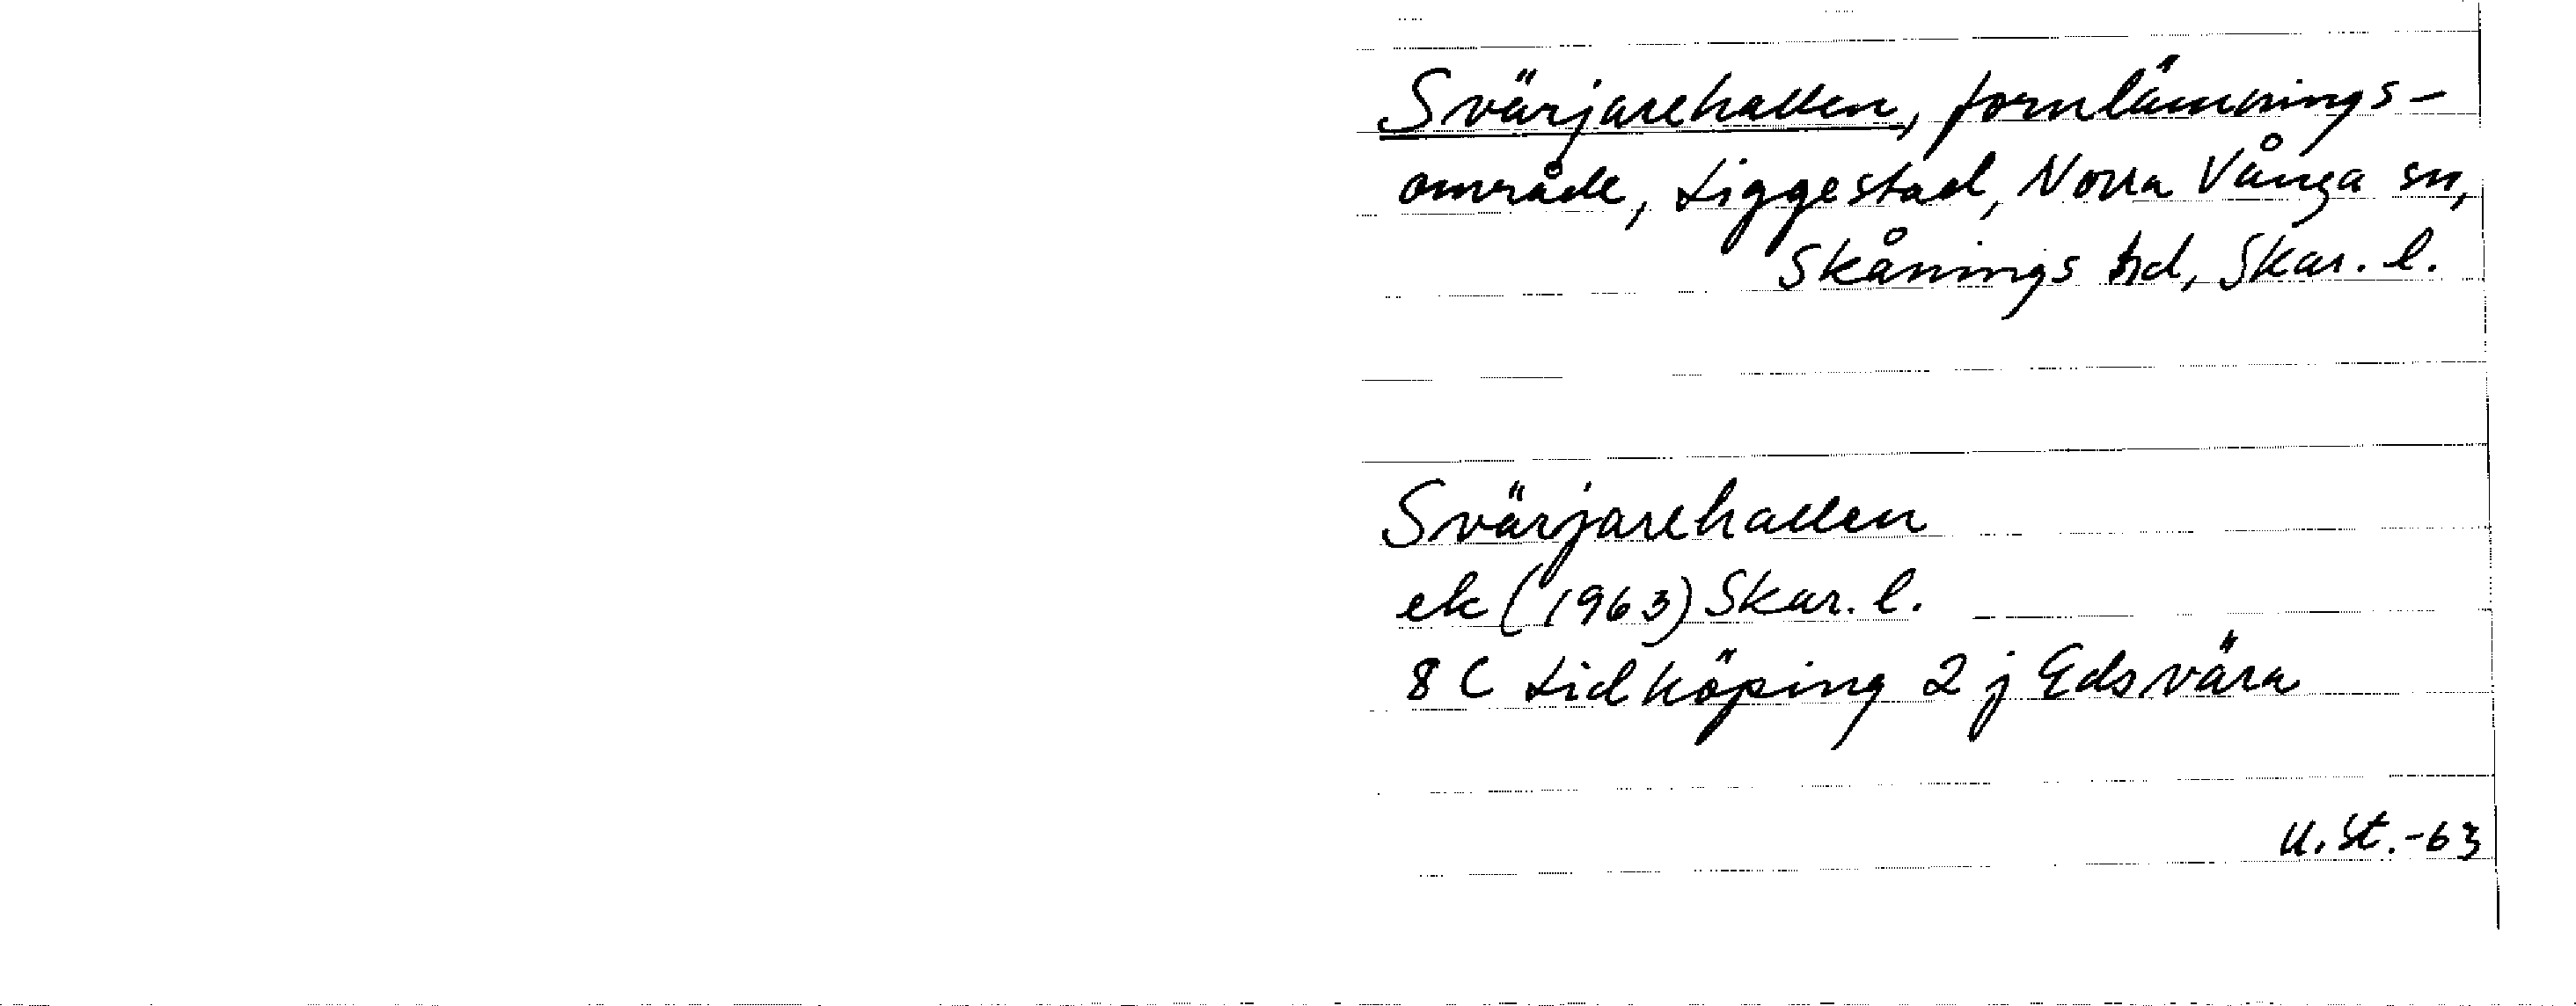 Svärjarehallen, fornlämnings-
område, Liggestad, Norra Vånga sn,
Skånings hd, Skar. l.
Svärjarehallen
ek (1963) Skar. l.
8 C Lidköping 2 j Edsvära
U. St. -63